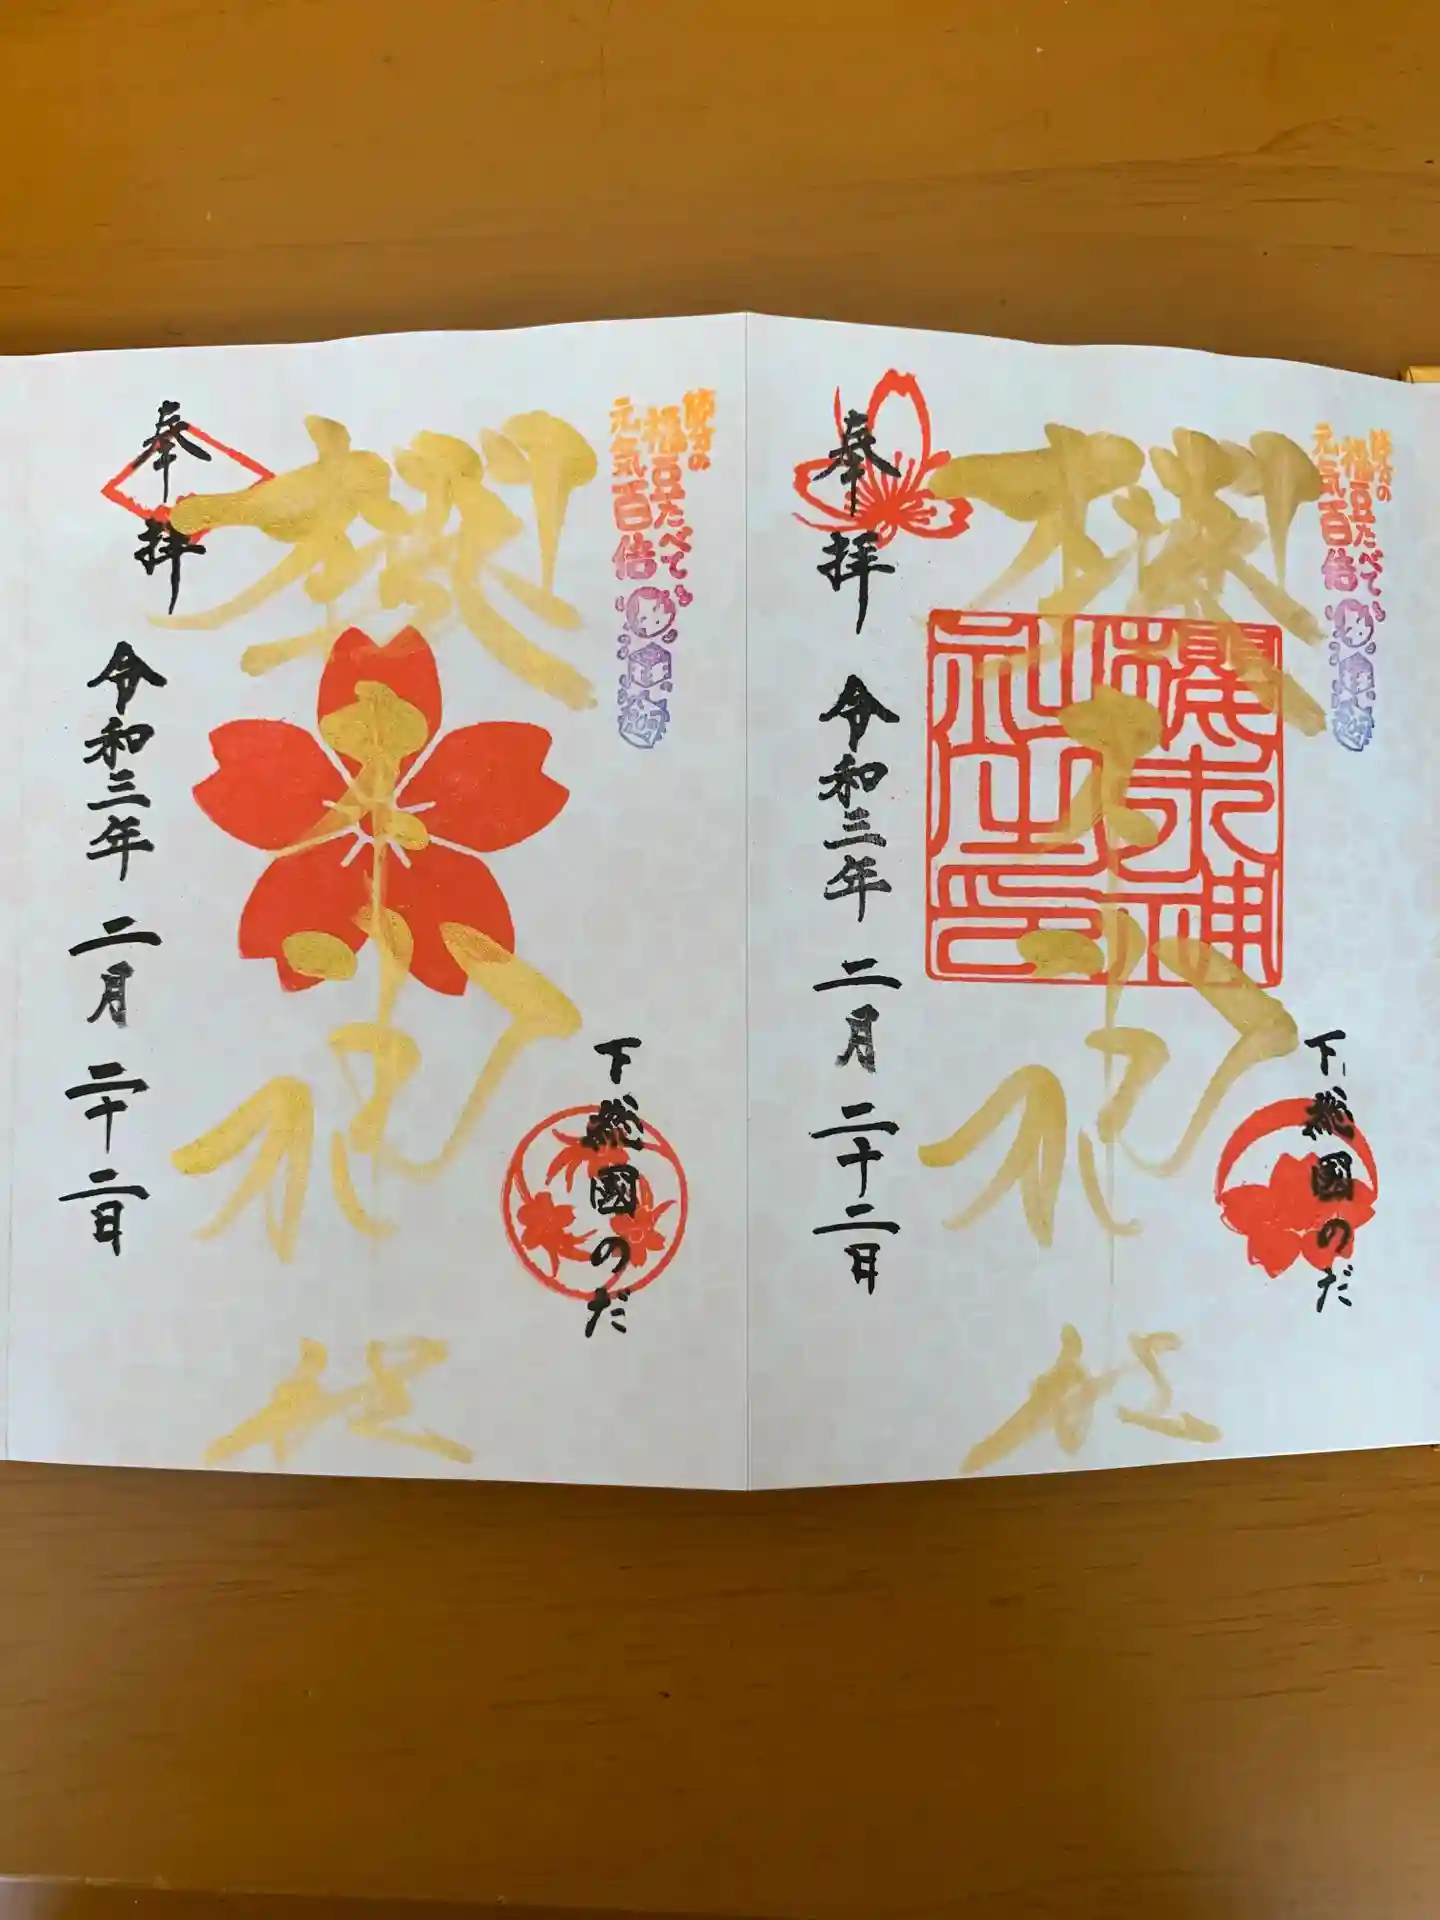 節分の
福豆たべて
元気百倍
下総國のだ
櫻木神社
櫻木神社之印
奉拝
令和三年 二月 二十二日
節分の
福豆たべて
元気百倍
下総國のだ
櫻木神社
奉拝
令和三年 二月 二十二日